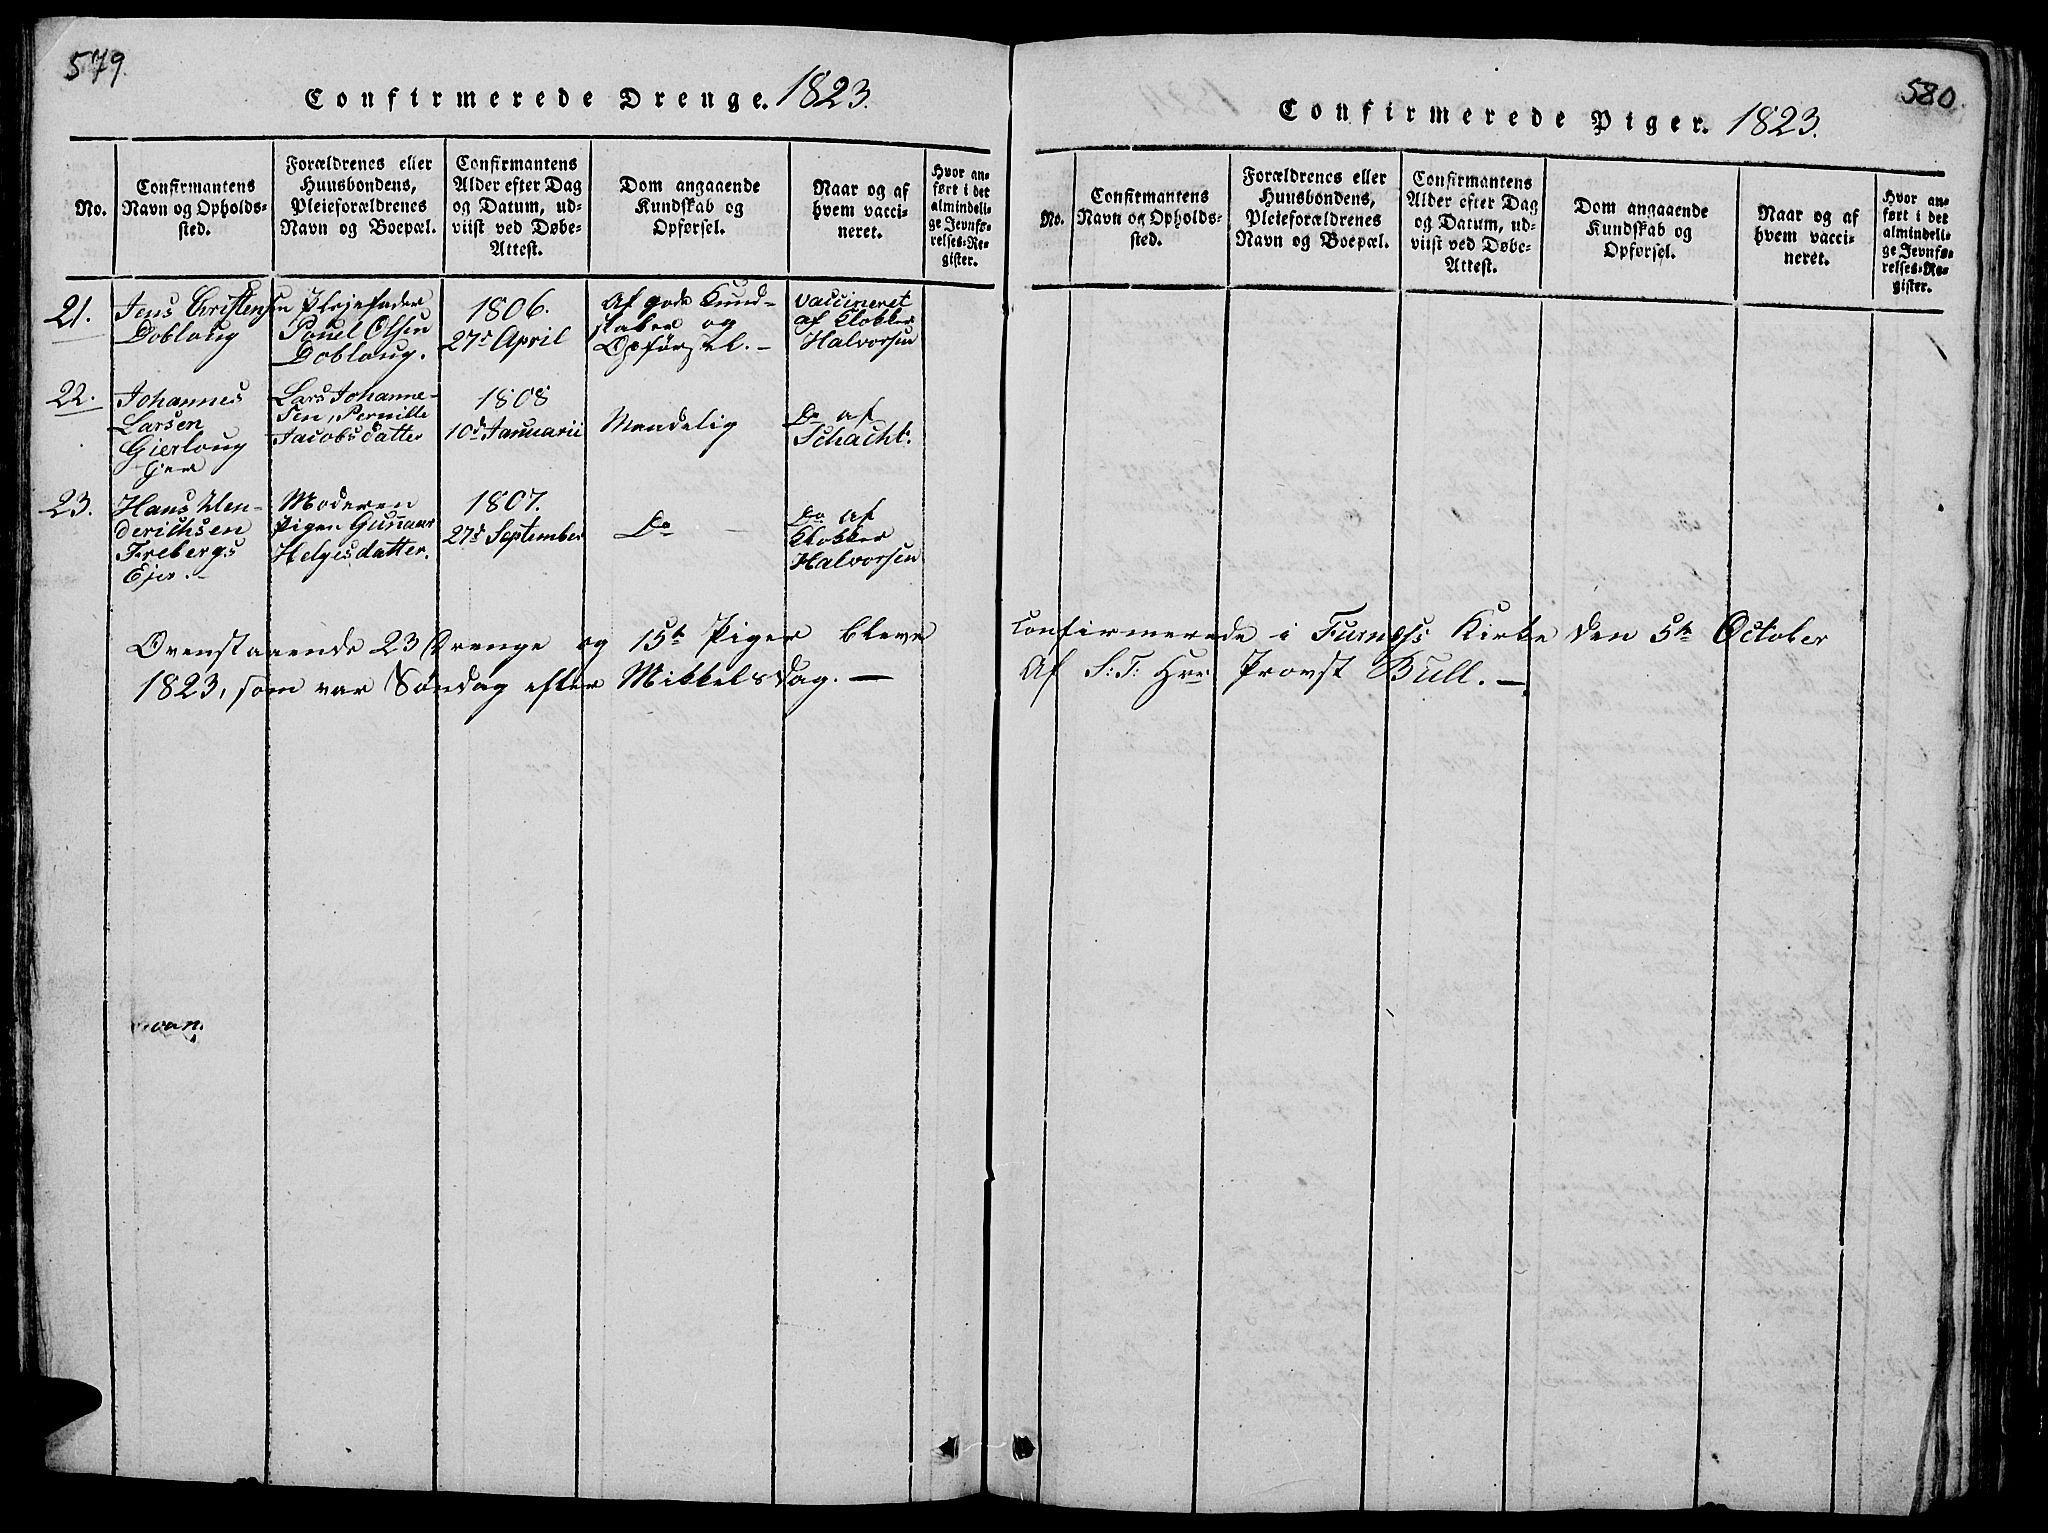 579.
Confirmerede Drenge. 1823.
No.
Confirmantens
Navn og Opholds-
sted.
Forældrenes eller
Huusbondens,
Pleieforældrenes
Navn og Boepæl.
Confirmantens
Alder efter Dag
og Datum, ud-
viist ved Døbe-
Attest.
Dom angaaende
Kundskab og
Opførsel.
Naar og af
hvem vacci-
neret.
Hvor an-
ført i det
almindeli-
ge Jevnfø-
relses-Re-
gister.
21.
Jens Christensen
Dobloug
Plejefader
Pouel Olsen
Dobloug.
1806.
27de April
Af gode Kund-
skaber og
Opførsel. -
vaccineret
af Klokker
Halvorsen
22.
Johannes
Larsen
Gjerloug
Lars Johanne-
sen, Pernille
Jacobsdatter
1808
10de Januarii
Maadelig
Do af
Schacht.
23.
Hans Hen-
derichsen
Frebergs
Ejer. -
Moderen
Pigen Gunnaur
Helgesdatter.
1807.
27de September
Do -
Do af
Klokker
Halvorsen
Ovenstaaende 23 Drenge og 15ten Piger bleve
1823, som var Søndag efter Mikkelsdag. —
580.
Confirmerede Piger. 1823.
No.
Confirmantens
Navn og Opholds-
sted.
Forældrenes eller
Huusbondens,
Pleieforældrenes
Navn og Boepæl.
Confirmantens
Alder efter Dag
og Datum, ud-
viist ved Døbe-
Attest.
Dom angaaende
Kundskab og
Opførsel.
Naar og af
hvem vacci-
neret.
Hvor an-
ført i det
almindeli-
ge Jevnfø-
relses-Re-
gister.
Confirmerede i Furness Kirke den 5te October
af S: T: Hrr Provst Bull. —